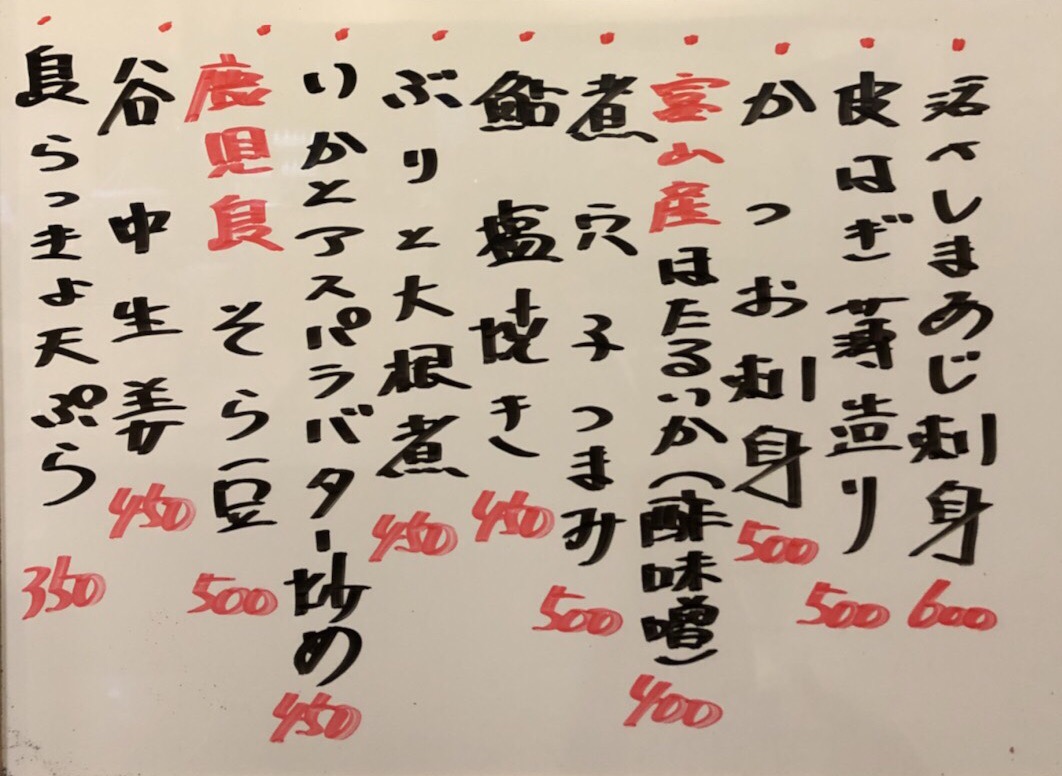 活〆しまあじ刺身 600
皮はぎ薄造り 500
かつお刺身 500
富山産ほたるいか(酢味噌) 400
煮穴子つまみ 500
鮎塩焼き 450
ぶりと大根煮 450
いかとアスパラバター炒め 450
鹿児島そら豆 500
谷中生姜 450
島らっきょ天ぷら 350